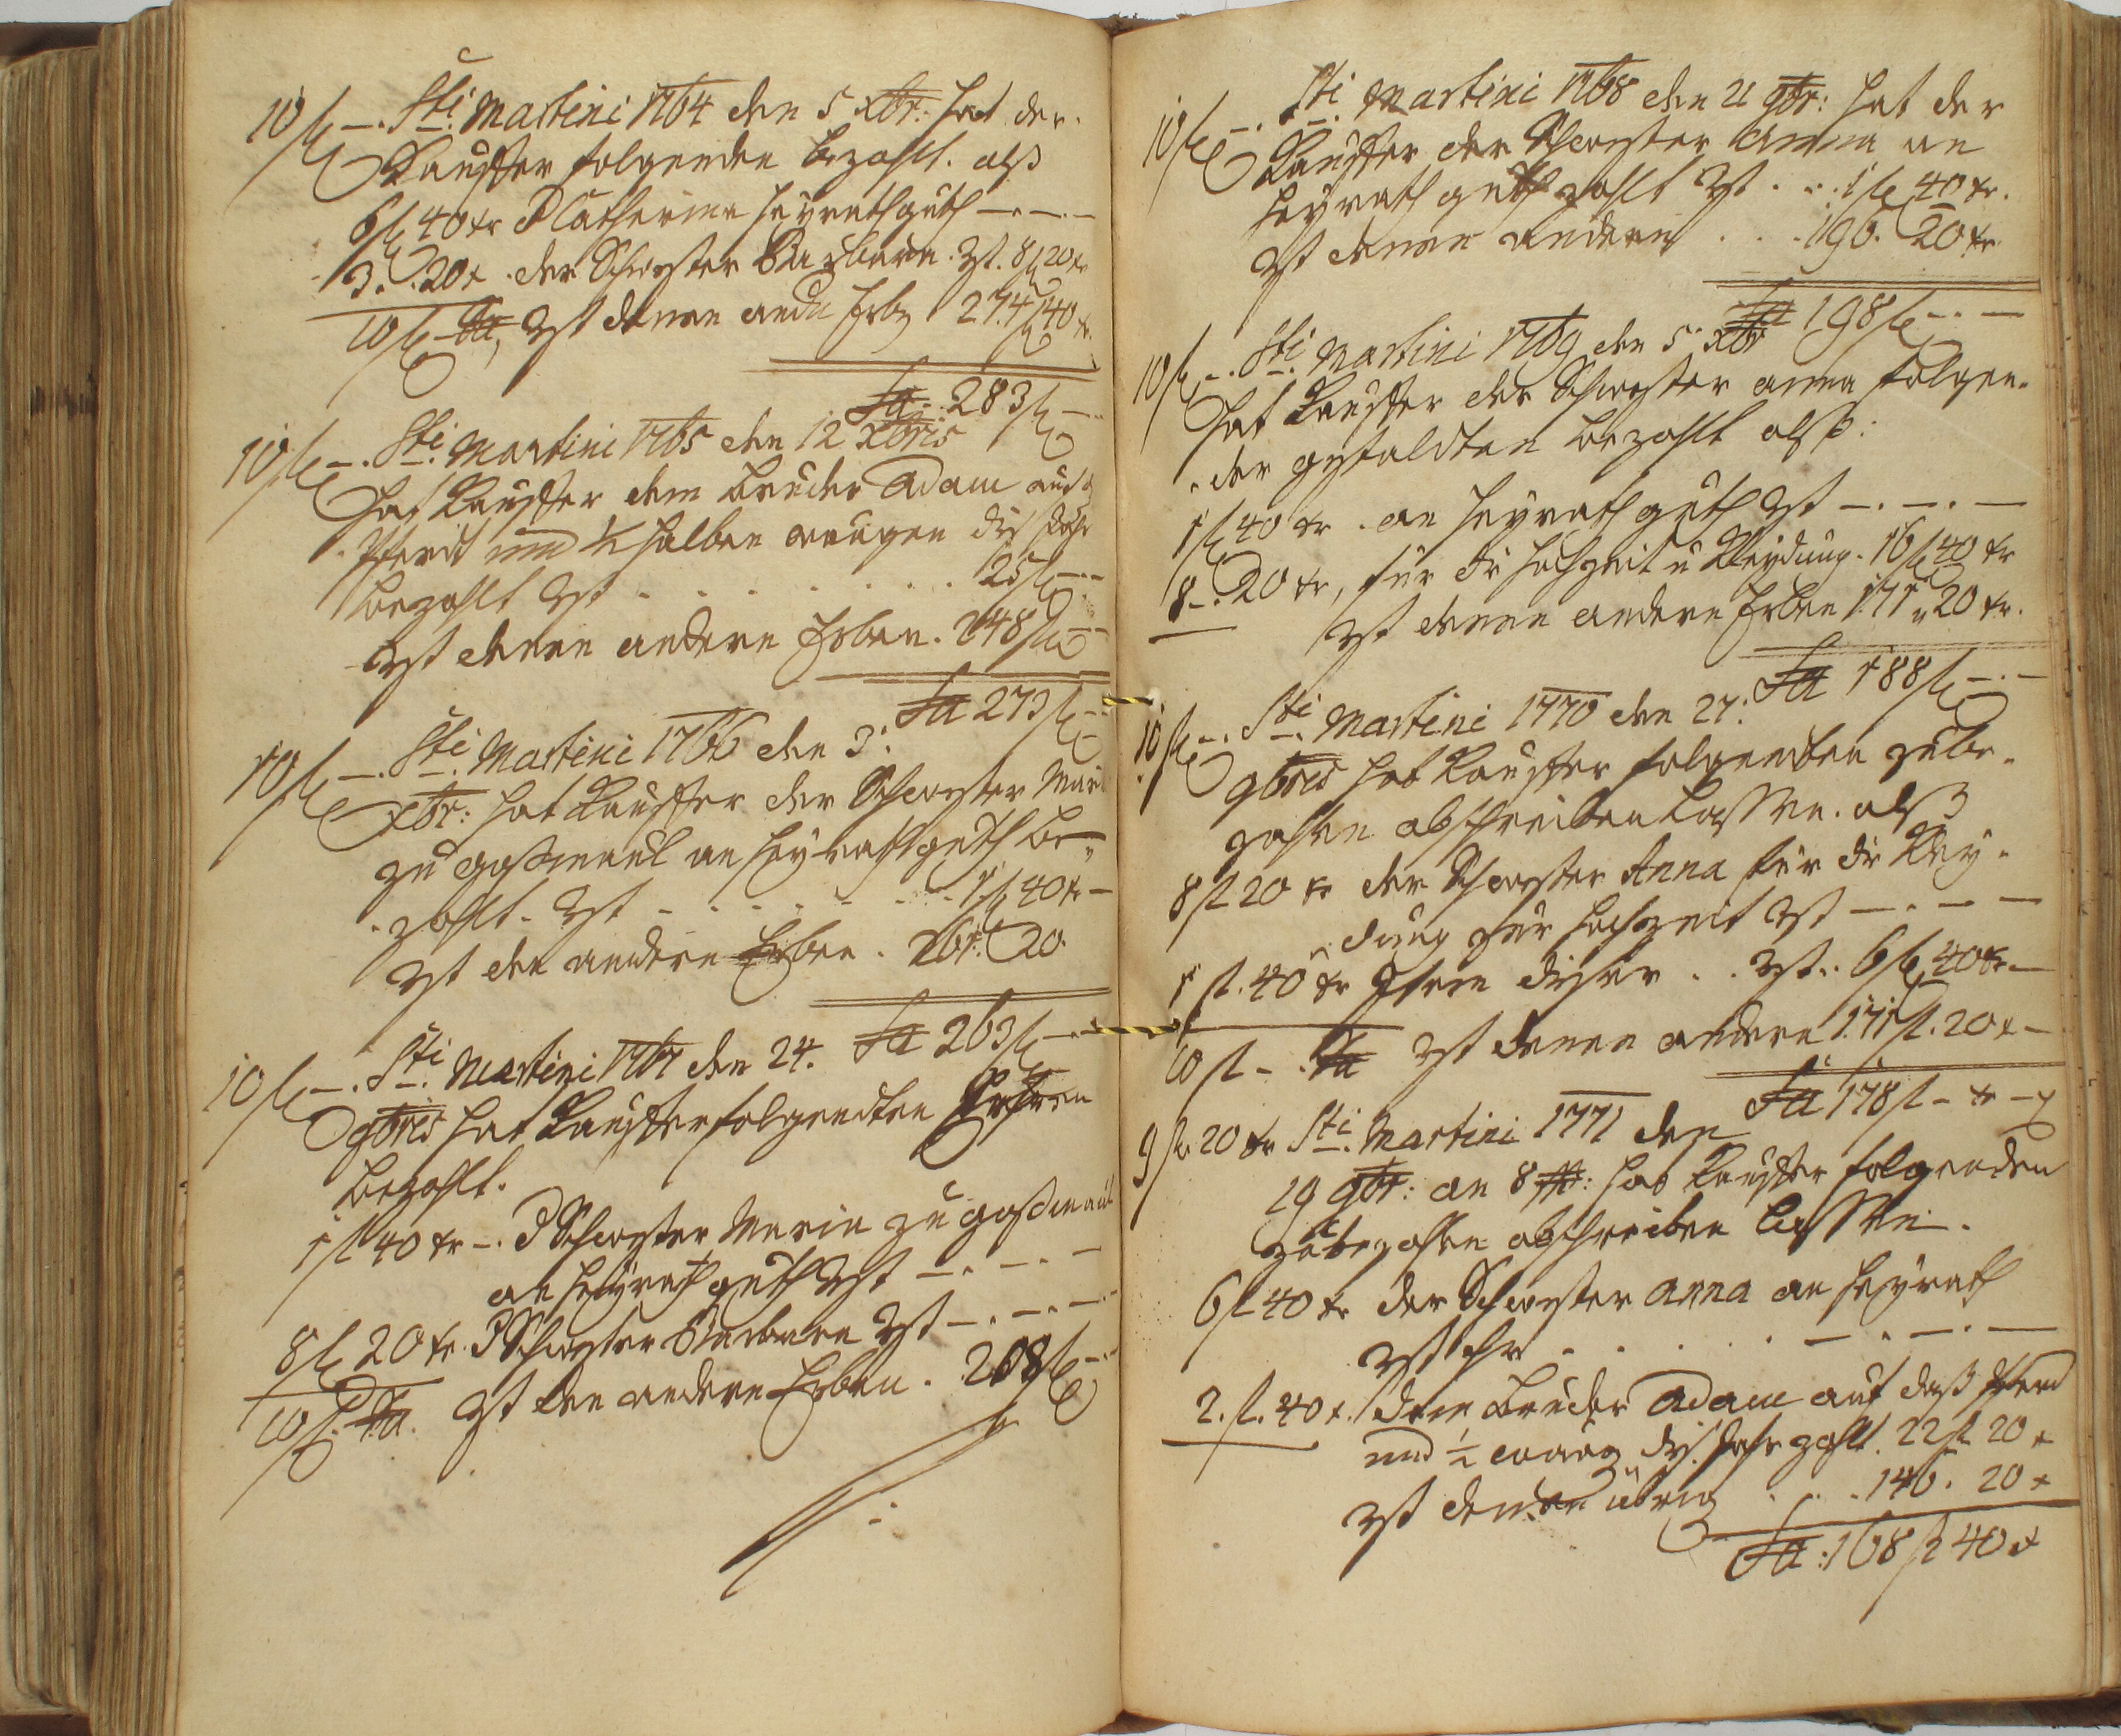 10 fl –. Sti. Martini 1764 den 5 xbr: hat der
Kauffer folgenden bezahlt. alß
6 fl 40 kr d Catherina heyrathguth –.–.–
3. 20 x. der Schwester Barbara. Rst. 8 fl 20 kr
10 fl – Sa, Rst denen andn Erbn 274 fl 40 kr.
Sa. 283 fl –.
10 fl –. Sti. Martini 1765 den 12 Xbris
hat Kauffer dem bruder Adam auf
Pferdt und ½ halben waagen diß Jahr
bezahlt Rst . . . . . . . 25 fl –.–
Rst denen andern Erben. 248 fl –
Sa 273 fl –
10 fl –. Sti. Martini 1766 den 3.
xbr: hat Kauffer der Schwester Mari
zu an heyrathguth be„
zahlt. Rst – . – . – . – . 1 fl 40 kr –
Rst den andern Erben . 261. 20
Sa 263 fl –.–
10 fl –. Sti. Martini 1767 den 24.
9bris hat Kauffer folgendten
bezahlt.
1 fl 40 kr –. d Schwester Maria zu
an heyrathguth Rst –.–.–
8 fl 20 kr. d Schwester Barbara Rst –.–.–
10 fl. Sa. Rst den andern Erben . 208 fl –
10 fl –. Sti. Martini 1768 den 21 9br: hat der
Kauffer der Schwester Anna an
heyrathguth zahlt Rst . . . 1 fl 40 kr.
Rst denen andern . . . 196. 20 kr.
Sa 198 fl –.–
10 fl –. Sti. Martini 1769 den 5. Xbr
hat Kauffer der Schwester anna folgen„
der gestaldten bezahlt alß:
1 fl 40 kr . an heyrathguth Rst –.–.–
8 –. 20 kr, für die hochzeit u Kleydung. 16 fl 40 kr
Rst denen andern Erben 171 „ 20 kr.
Sa 188 fl –.–
10 fl –. Sti. Martini 1770 den 27.
9bris hat Kauffer folgendten zube„
zahlen abschreiben lassen. alß
8 fl 20 kr der Schwester Anna für die Kley„
dung zur hochzeit Rst –.–.–
1 fl. 40 kr Ihren . . Rst.. 6 fl 40 kr –
10 fl –. Sa Rst denen andern 171 fl. 20 x –
Sa 178 fl – kr –
9 fl. 20 kr Sti. Martini 1771 den
29 9br: an 8 hat Kauffer folgenden
zubezahlen abschreiben lassen.
6 fl 40 kr der Schwester anna an heyrath
Rst ihr . . . . –.–.–
2. fl. 40 x. dem bruder Adam auf daß Pferd
und ½ waag diß Jahr zahlt. 22 fl 20 x
Rst denen übrig . . . 146. 20 x
Sa: 168 fl 40 x